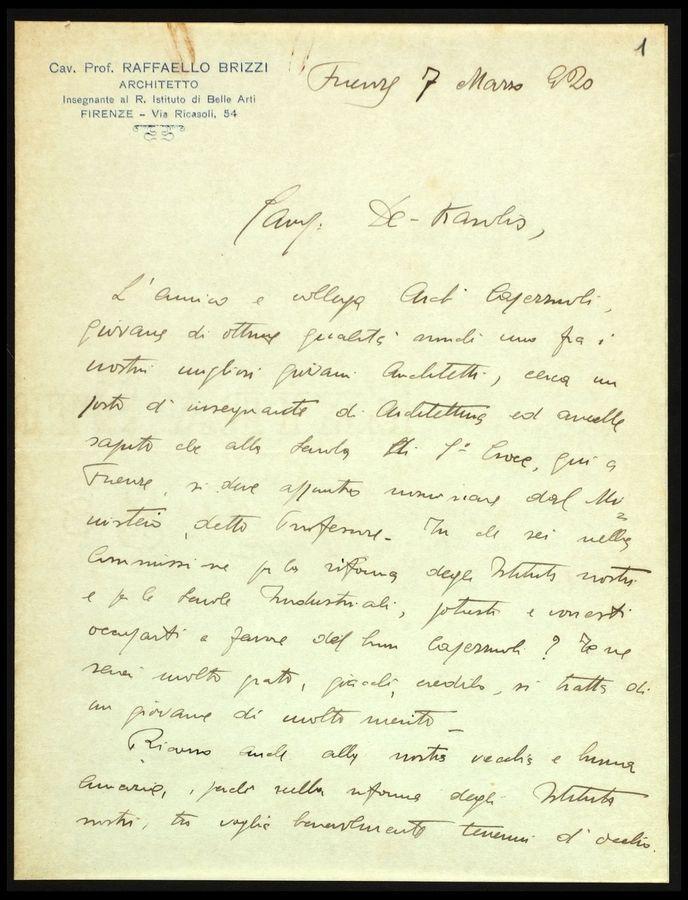 1
Cav. Prof. RAFFAELLO BRIZZI
ARCHITETTO
Insegnante al R. Istituto di Belle Arti
FIRENZE - Via Ricasoli, 54
Firenze 7 Marzo 920
De-Karolis,
L'amico e collega Arch Caperzuoli,
giovane di ottime qualità uno fra i
nostri migliori giovani Architetti, cerca un
posto d'insegnante di Architettura ed
saputo che alla Scuola di Sa Croce, qui a
Firenze, si deve appunto nominare dal Mi=
nistero, detto Professore. Tu che sei nella
Commissione p la riforma degli Istituti nostri
e p le Scuole Industriali, potresti e vorresti
occuparti a favore del buon Caperzuoli? Te ne
sarei molto grato, giacchè, credilo, si tratta di
un giovane di molto merito_
Ricorro anche alla nostra vecchia e buona
amicizia, perchè nella riforma degli Istituti
nostri, tu voglia benevolmente tenermi d'occhio.